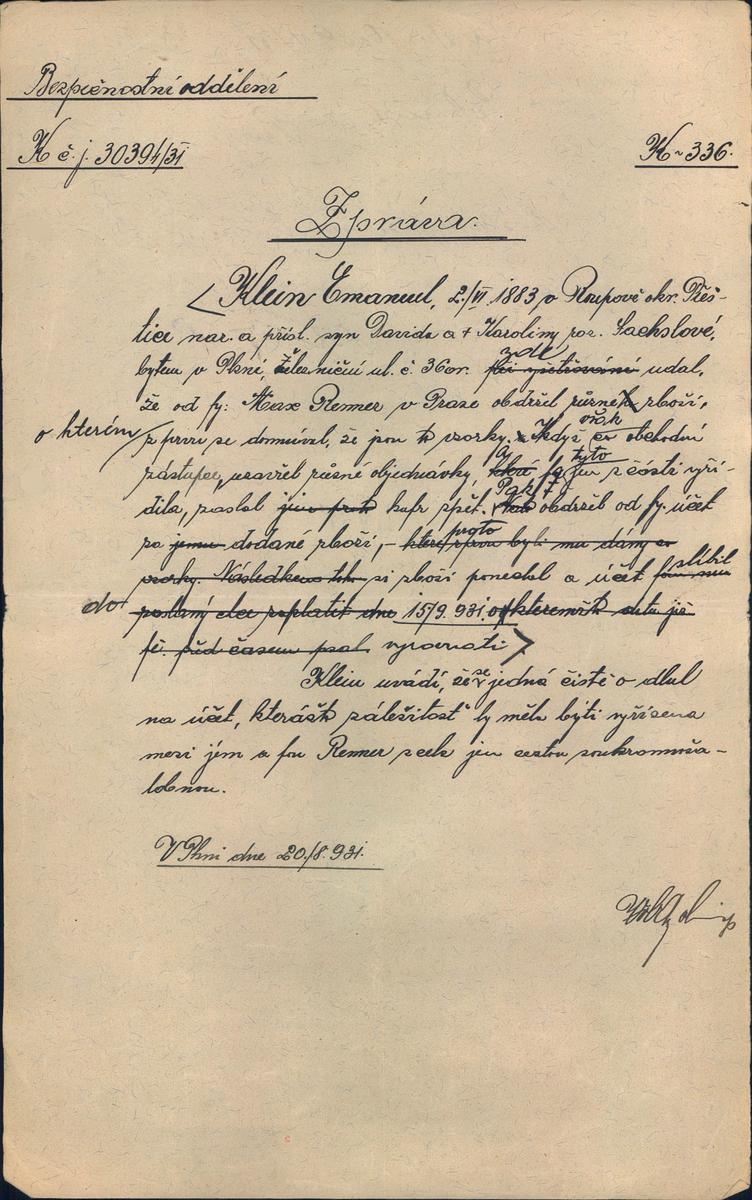 Bezpečnostní oddělení
K č. j. 30394/31
K-336.
Zpráva.
Klein Emanuel, 2./VI 1883 v Roupově okr. Přeš-
tice nar. a přísl. syn Davida a + Karoliny roz. Sachslové,
zde
bytem v Plzni, Železniční ul. č. 36 or. při vyšetřování udal,
že od fy: Max Renner v Praze obdržel různé zboží,
o kterém však
z prvu se domníval, že jsou to vzorky. Když co obchodní
a tyto
zástupce, uzavřel různé objednávky, které fa jen z části vyří-
Pak
dila, zaslal jim proto kufr zpět. obdržel od fy. účet
proto
za jemu dodané zboží, - které zprvu byli mu dány co
slíbil
vzorky. Následkem toho si zboží ponechal a účet
do
poslaný chce zaplatit dne 15/9. 931. o kteremžto datu již
fě. před časem psal vyrovnati
se
Klein uvádí, že jedná čistě o dluh
na účet, kterážto záležitost by měla býti vyřízena
mezi jím a fou Renner jen cestou soukromoža-
lobnou.
V Plzni dne 20/8. 931.